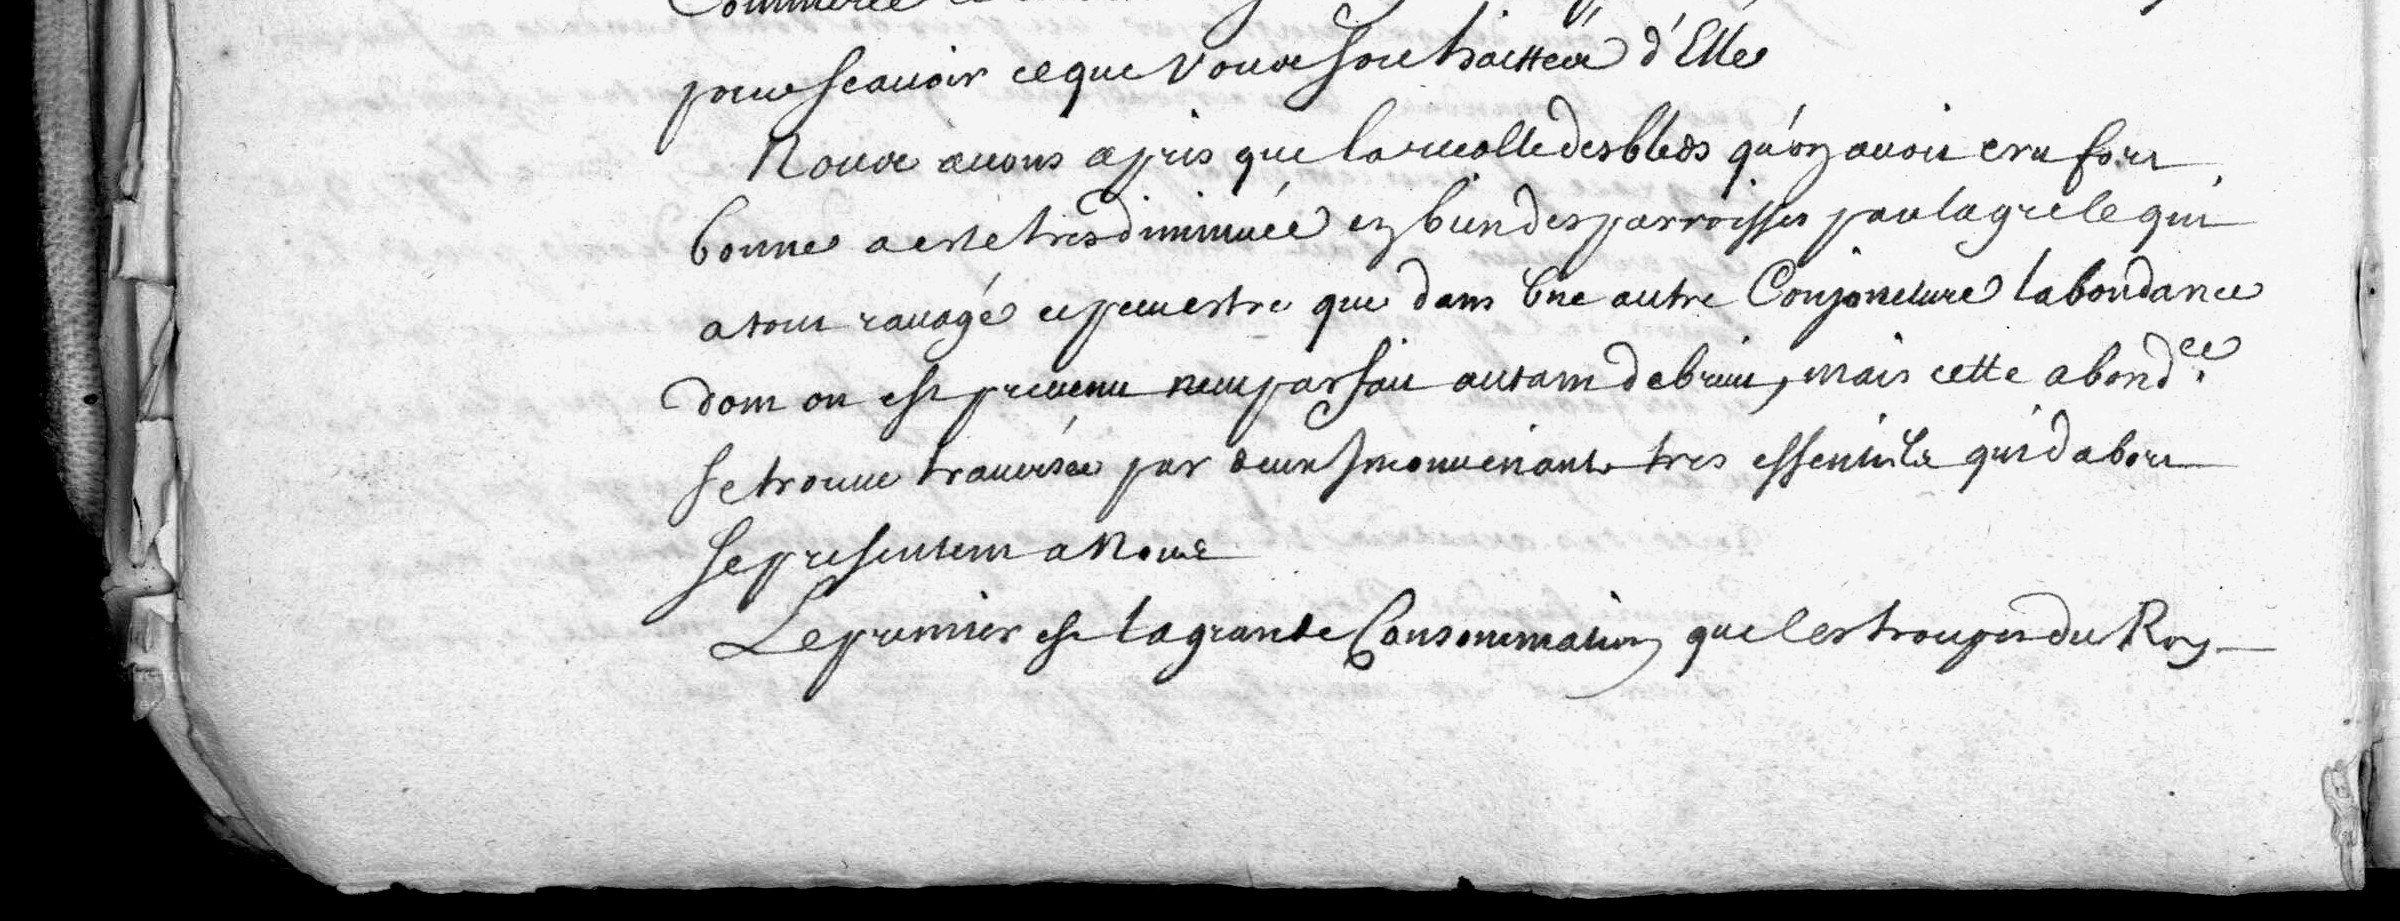 Commerce
pour scavoir ce que vous souhaitter d'Elle
Nous avons apris que la recolte des bleds qu'on avoit cru fort
bonne a esté tres diminuée en bien des parroisses par la grele qui
a tout ravagé et peut estre que dans une autre Conjoncture l'abondance
dont on est prevenu neut pas fait autant de bruit, mais cette abond.ce
se trouve traversée par deux Inconvenients tres essentiels qui d'abort
se presentent a Nous
Le premier est la grande Consommation que les troupes du Roy